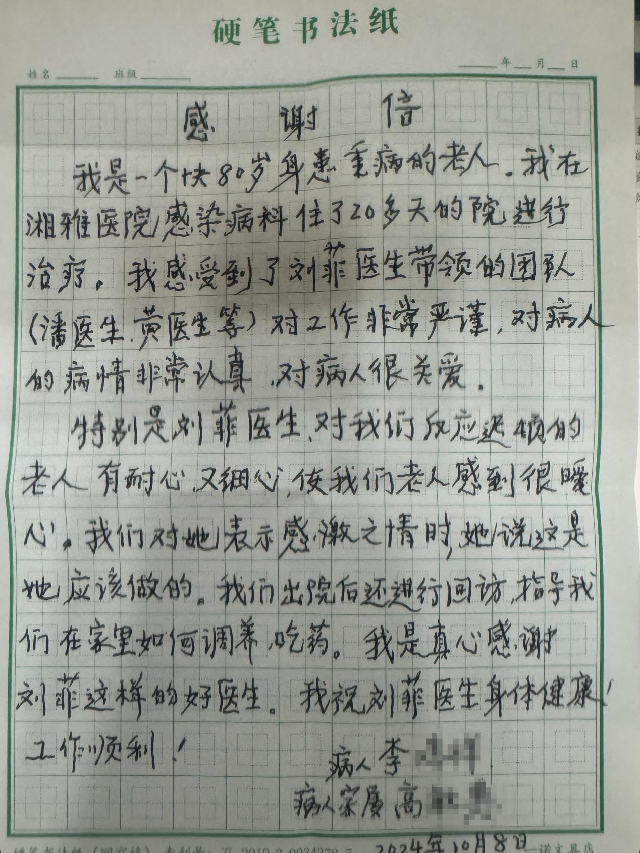 硬笔书法纸
姓名 班级 年 月 日
感谢信
我是一个快80岁身患重病的老人。我在
湘雅医院感染病科住了20多天的院进行
治疗。我感受到了刘菲医生带领的团队
(潘医生、黄医生等)对工作非常严谨,对病人
的病情非常认真,对病人很关爱。
特别是刘菲医生,对我们反应迟顿的
老人有耐心,又细心,使我们老人感到很暖
心。我们对她表示感激之情时,她说这是
她应该做的。我们出院后还进行回访,指导我
们在家里如何调养,吃药。我是真心感谢
刘菲这样的好医生。我祝刘菲医生身体健康!
工作顺利!
病人 李
病人家属 高
2024年10月8日